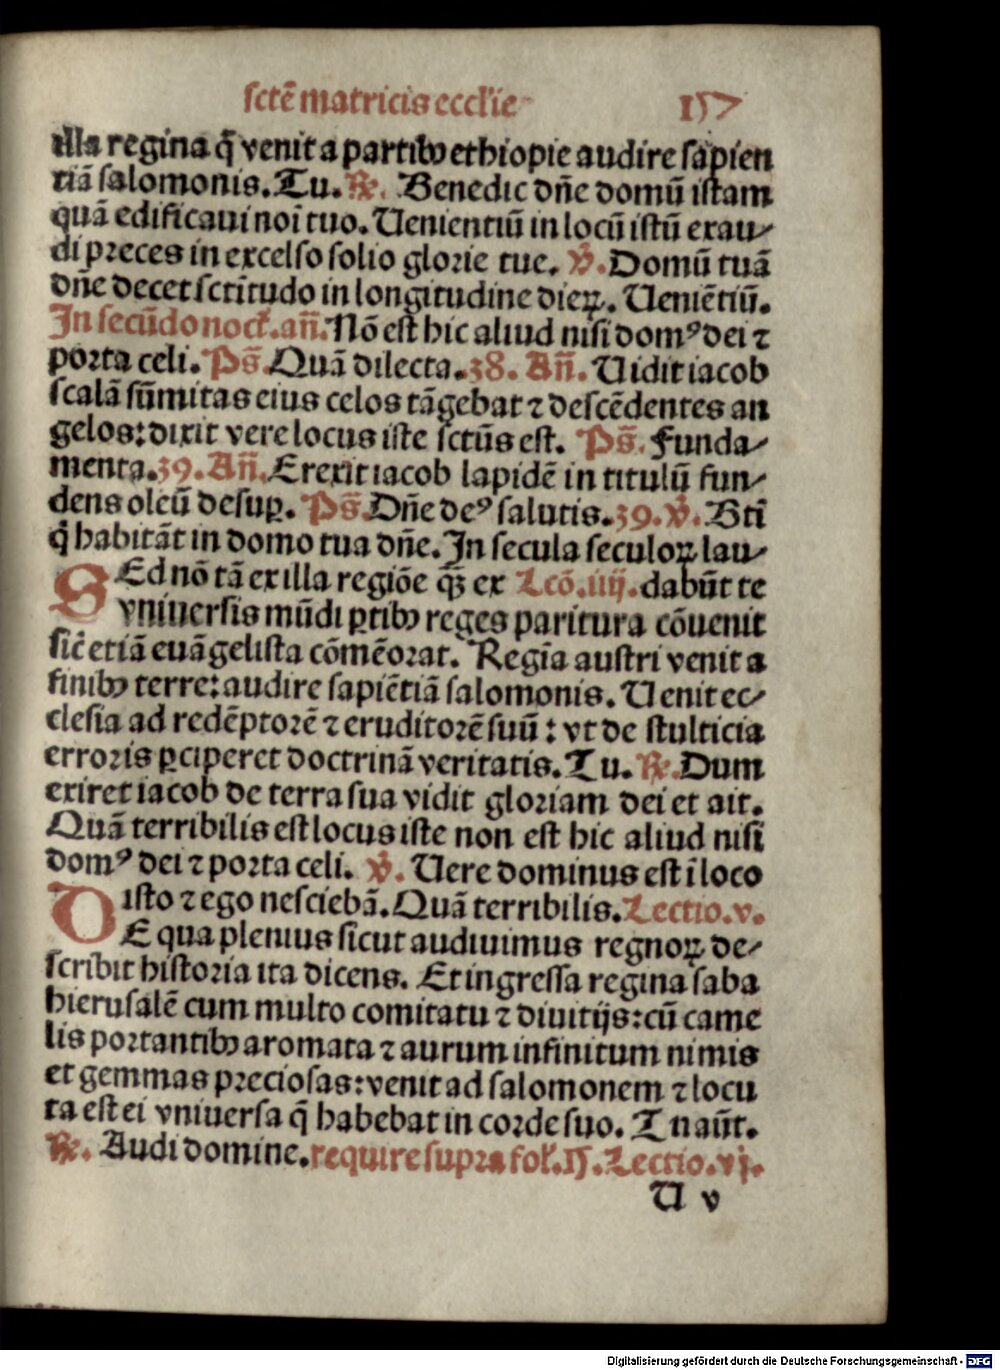 sctē matricis eccl'ie 157
illa regina q̄ venit a partibꝰ ethiopie audire sapien
tiā salomonis. Tu. ℟. Benedic dn̄e domū istam
quā edificaui noī tuo. Uenientiū in locū istū exau⸗
di preces in excelso solio glorie tue. ℣. Domū tuā
dn̄e decet sctītudo in longitudine dieꝝ. Ueniētiū.
In secūdo noct̄. an̄. Nō est hic aliud nisi domꝰ dei ⁊
porta celi. Ps̄. Quā dilecta. 38. An̄. Uidit iacob
scalā sūmitas eius celos tāgebat ⁊ descēdentes an
gelos: dixit vere locus iste sctūs est. Ps̄. Funda⸗
menta. 39. An̄. Erexit iacob lapidē in titulū fun⸗
dens oleū desuꝑ. Ps̄. Dn̄e deꝰ salutis. 39. ℣. Btī
q̇ habitāt in domo tua dn̄e. In secula seculoꝝ lau⸗
SEd nō tā ex illa regiōe qꝫ ex Lcō. iiij. dabūt te
vniuersis mūdi ꝑtibꝰ reges paritura cōuenit
sic̄ etiā euāgelista cōmēorat. Regīa austri venit a
finibꝰ terre: audire sapiētiā salomonis. Uenit ec⸗
clesia ad redēptorē ⁊ eruditorē suū: vt de stulticia
erroris ꝑciperet doctrinā veritatis. Tu. ℟. Dum
exiret iacob de terra sua vidit gloriam dei et ait.
Quā terribilis est locus iste non est hic aliud nisi
domꝰ dei ⁊ porta celi. ℣. Uere dominus est ī loco
isto ⁊ ego nesciebā. Quā terribilis. Lectio. v.
DE qua plenius sicut audiuimus regnoꝝ de⸗
scribit historia ita dicens. Et ingressa regina saba
hierusalē cum multo comitatu ⁊ diuitijs: cū came
lis portantibꝰ aromata ⁊ aurum infinitum nimis
et gemmas preciosas: venit ad salomonem ⁊ locu
ta est ei vniuersa q̄ habebat in corde suo. Tu aūt.
℟. Audi domine. require supra fol'. 15. Lectio. vj.
U v
Digitalisierung gefördert durch die Deutsche Forschungsgemeinschaft - DFG